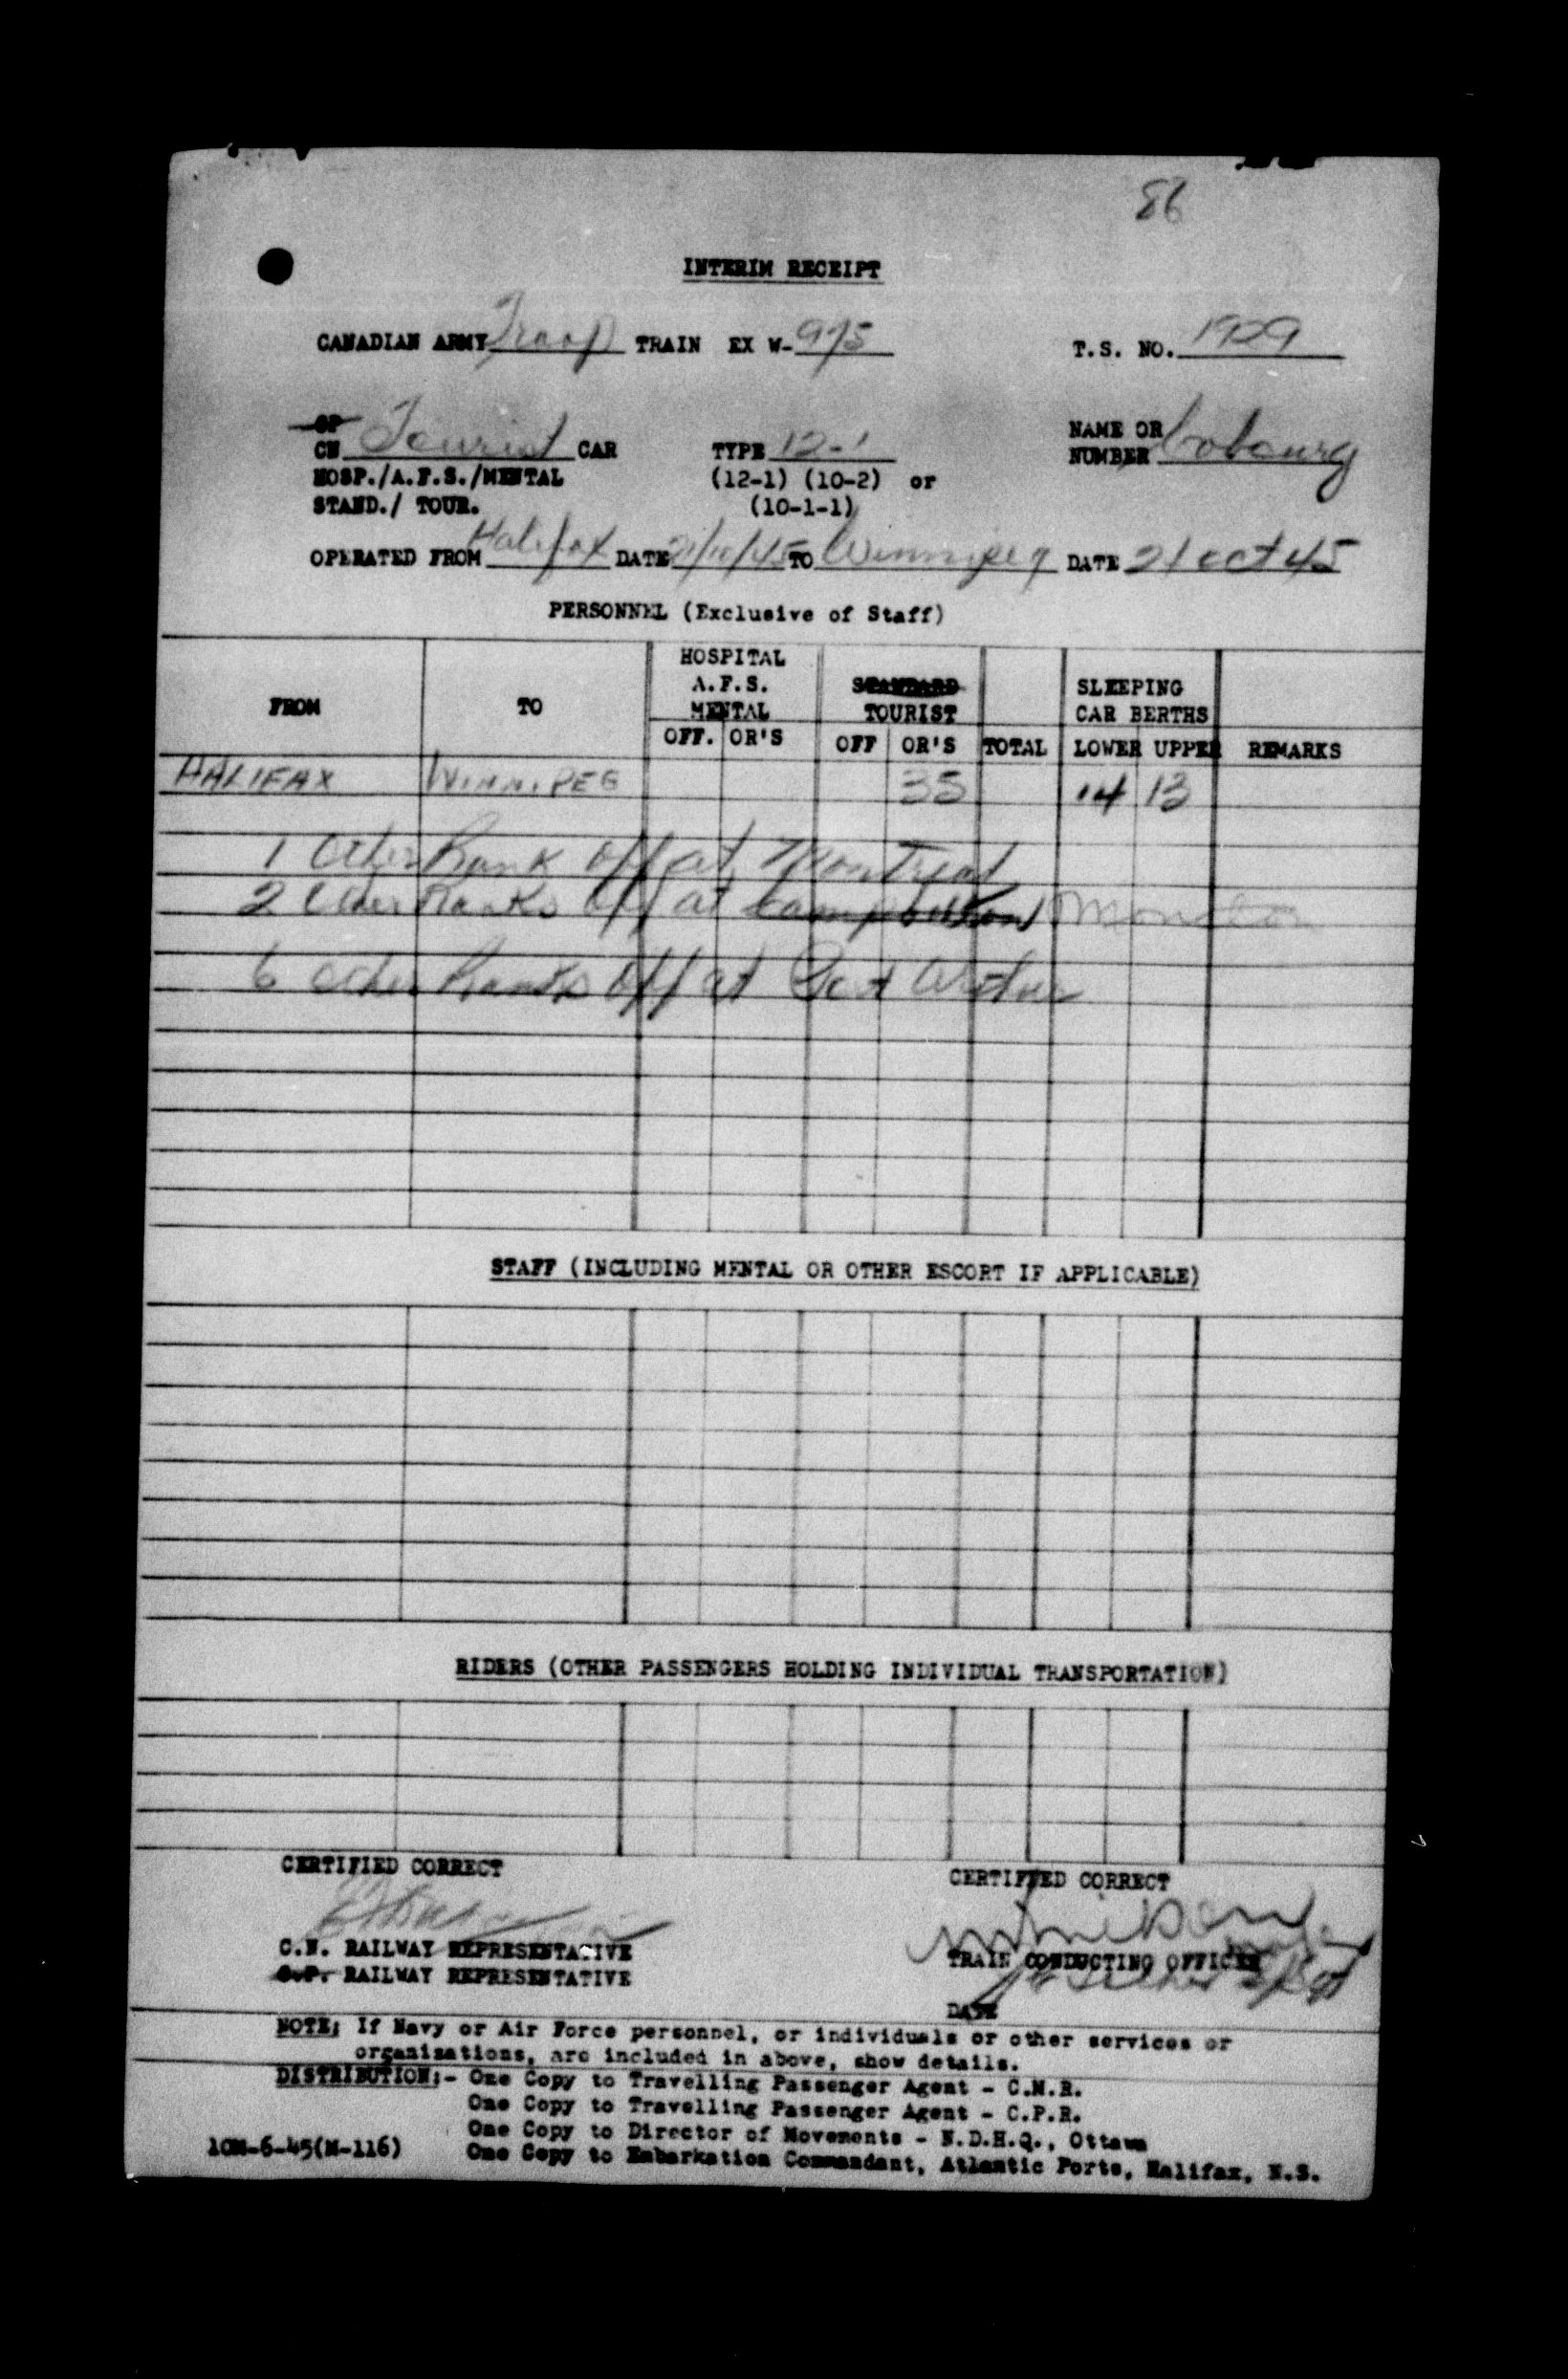 86
INTERIM RECEIPT
CANADIAN ARMY Troop TRAIN EX W- 975 T.S. NO. 1929
CP
CN Tourist CAR TYPE 12-1 NAME OR NUMBER Cobourg
HOSP./A.F.S./MENTAL (12-1) (10-2) or
STAND./ TOUR. (10-1-1)
OPERATED FROM Halifax DATE 21/10/45 TO Winnipeg DATE 21 Oct 45
PERSONNEL (Exclusive of Staff)
FROM TO HOSPITAL A.F.S. MENTAL STANDARD TOURIST SLEEPING CAR BERTHS
OFF. OR'S OFF OR'S TOTAL LOWER UPPER REMARKS
HALIFAX WINNIPEG 35 14 13
1 Other Rank off at Montreal
2 Other Ranks off at Campbellton Moncton
6 Other Ranks off at Port Arthur
STAFF (INCLUDING MENTAL OR OTHER ESCORT IF APPLICABLE)
RIDERS (OTHER PASSENGERS HOLDING INDIVIDUAL TRANSPORTATION)
CERTIFIED CORRECT CERTIFIED CORRECT
C.N. RAILWAY REPRESENTATIVE TRAIN CONDUCTING OFFICER
C.P. RAILWAY REPRESENTATIVE
DATE
NOTE: If Navy or Air Force personnel, or individuals or other services or
organizations, are included in above, show details.
DISTRIBUTION:- One Copy to Travelling Passenger Agent - C.N.R.
One Copy to Travelling Passenger Agent - C.P.R.
One Copy to Director of Movements - N.D.H.Q., Ottawa
10M-6-45(M-116) One Copy to Embarkation Commandant, Atlantic Ports, Halifax, N.S.